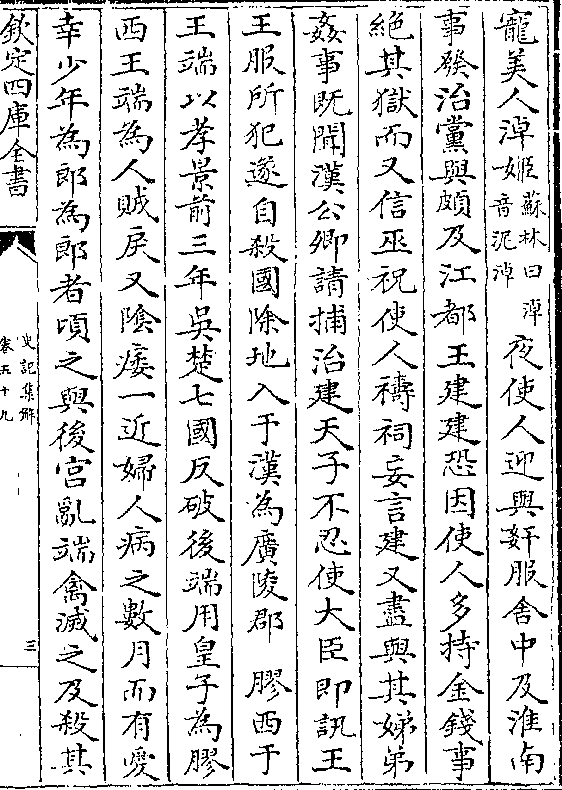 寵美人淖姬蘇林曰淖音泥淖夜使人迎與奸服舍中及淮南
事發治黨與頗及江都王建建恐因使人多持金錢事
絶其獄而又信巫祝使人禱祠妄言建又盡與其娣弟
姦事既聞漢公卿請捕治建天子不忍使大臣即訊王
王服所犯遂自殺國除地入于漢為廣陵郡　膠西于
王端以孝景前三年吳楚七國反破後端用皇子為膠
西王端為人賊戾又陰痿一近婦人病之數月而有愛
幸少年為郎為郎者頃之與後宫亂端禽滅之及殺其
欽定四庫全書
史記集解
卷五十九
三